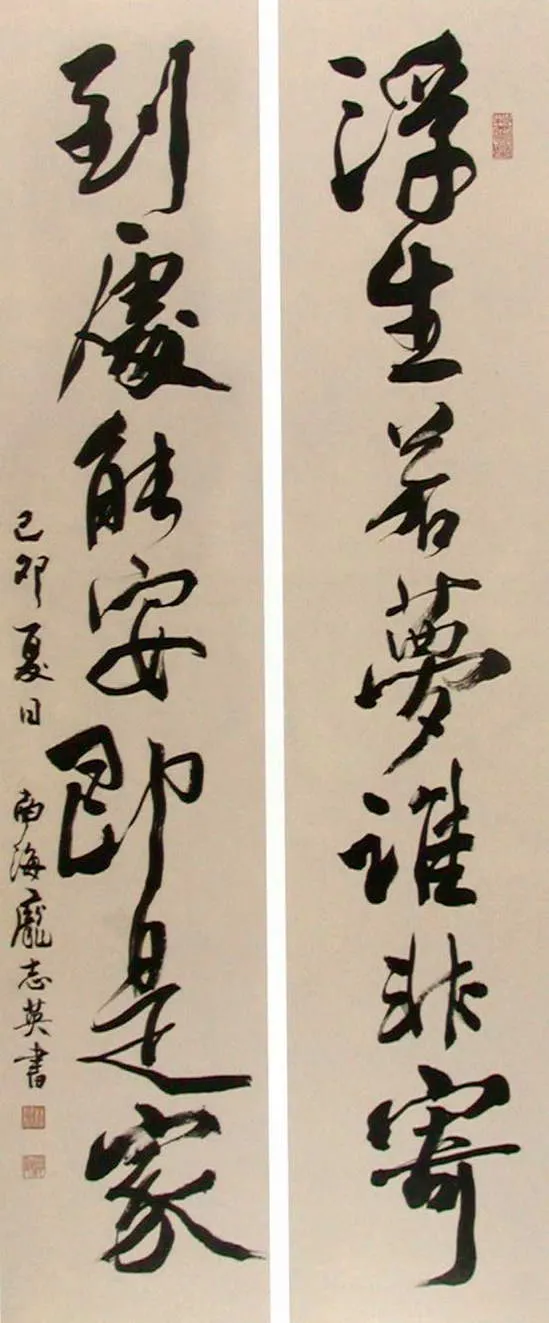 浮生若夢誰非寄
到處能安即是家
己卯夏日 南海龐志英書